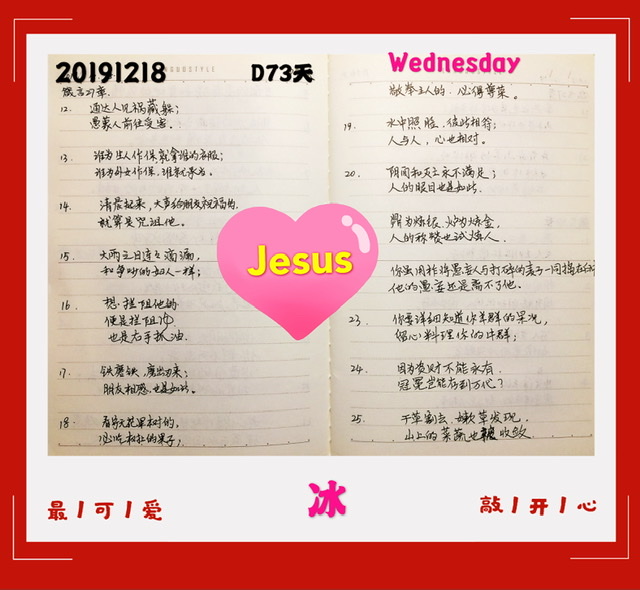 20191218
D73天
Wednesday
箴言27章.
12. 通达人见祸藏躲;
愚蒙人前往受害.
13. 谁为生人作保,就拿谁的衣服;
谁为外女作保,谁就承当.
14. 清晨起来,大声给朋友祝福的,
就算是咒诅他。
15. 大雨之日连连滴漏,
和争吵的妇人一样;
16. 想拦阻她的
便是拦阻风
也是右手抓油.
17. 铁磨铁,磨出刃来;
朋友相感,也是如此.
18. 看守无花果树的,
必吃树上的果子;
敬奉主人的,必得尊荣。
19. 水中照脸,彼此相符;
人与人,心也相对。
20. 阴间和灭亡永不满足;
人的眼目也是如此.
鼎为炼银,炉为炼金,
人的称赞也试炼人.
你虽用杵将愚妄人与打碎的麦子一同捣在臼
他的愚妄还是离不了他。
23. 你要详细知道你羊群的景况,
留心料理你的牛群;
24. 因为资财不能永有.
冠冕岂能存到万代?
25. 干草割去,嫩草发现,
山上的菜蔬也被收敛
Jesus
最丨可丨爱
冰
敲丨开丨心